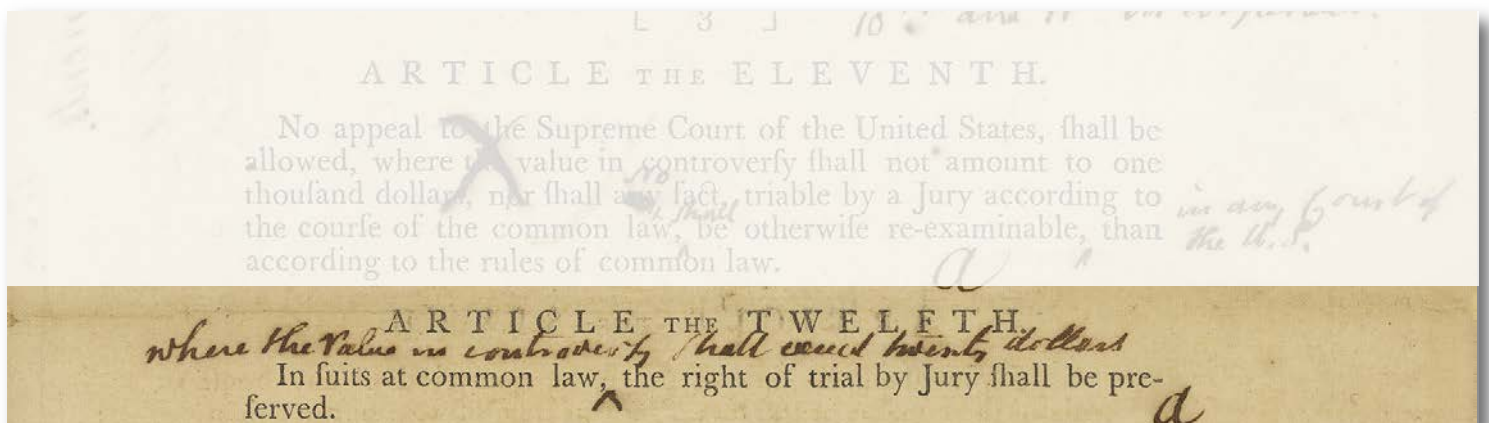 [ 3 ]
ARTICLE THE ELEVENTH.
No appeal to the Supreme Court of the United States, ſhall be
allowed, where the value in controverſy ſhall not amount to one
no
thouſand dollars, nor ſhall any fact, triable by a Jury according to in any Court of
shall
the courſe of the common law, be otherwiſe re-examinable, than the U.S.
according to the rules of common law. a
ARTICLE THE TWELFTH.
where the value in controversy shall exceed twenty dollars
In ſuits at common law, ‸ the right of trial by Jury ſhall be pre-
ſerved. a